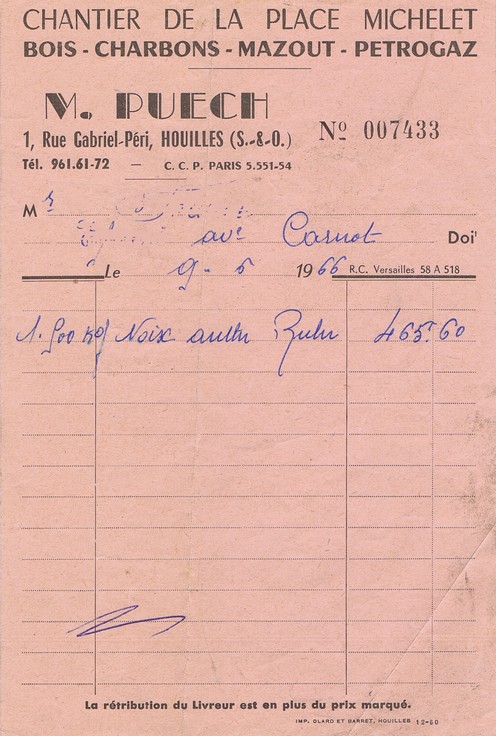 CHANTIER DE LA PLACE MICHELET
BOIS - CHARBONS - MAZOUT - PETROGAZ
M. PUECH
1, Rue Gabriel-Péri, HOUILLES (S.-&-O.) Nº 007433
Tél. 961.61-72 — C. C. P. PARIS 5.551-54
M r
ave Carnot Doit
Le 9 - 6 1966 R.C. Versailles 58 A 518
1.500 kg Noix anthr Ruhr 465F.60
La rétribution du Livreur est en plus du prix marqué.
IMP. OLARD ET BARRET, HOUILLES 12-60